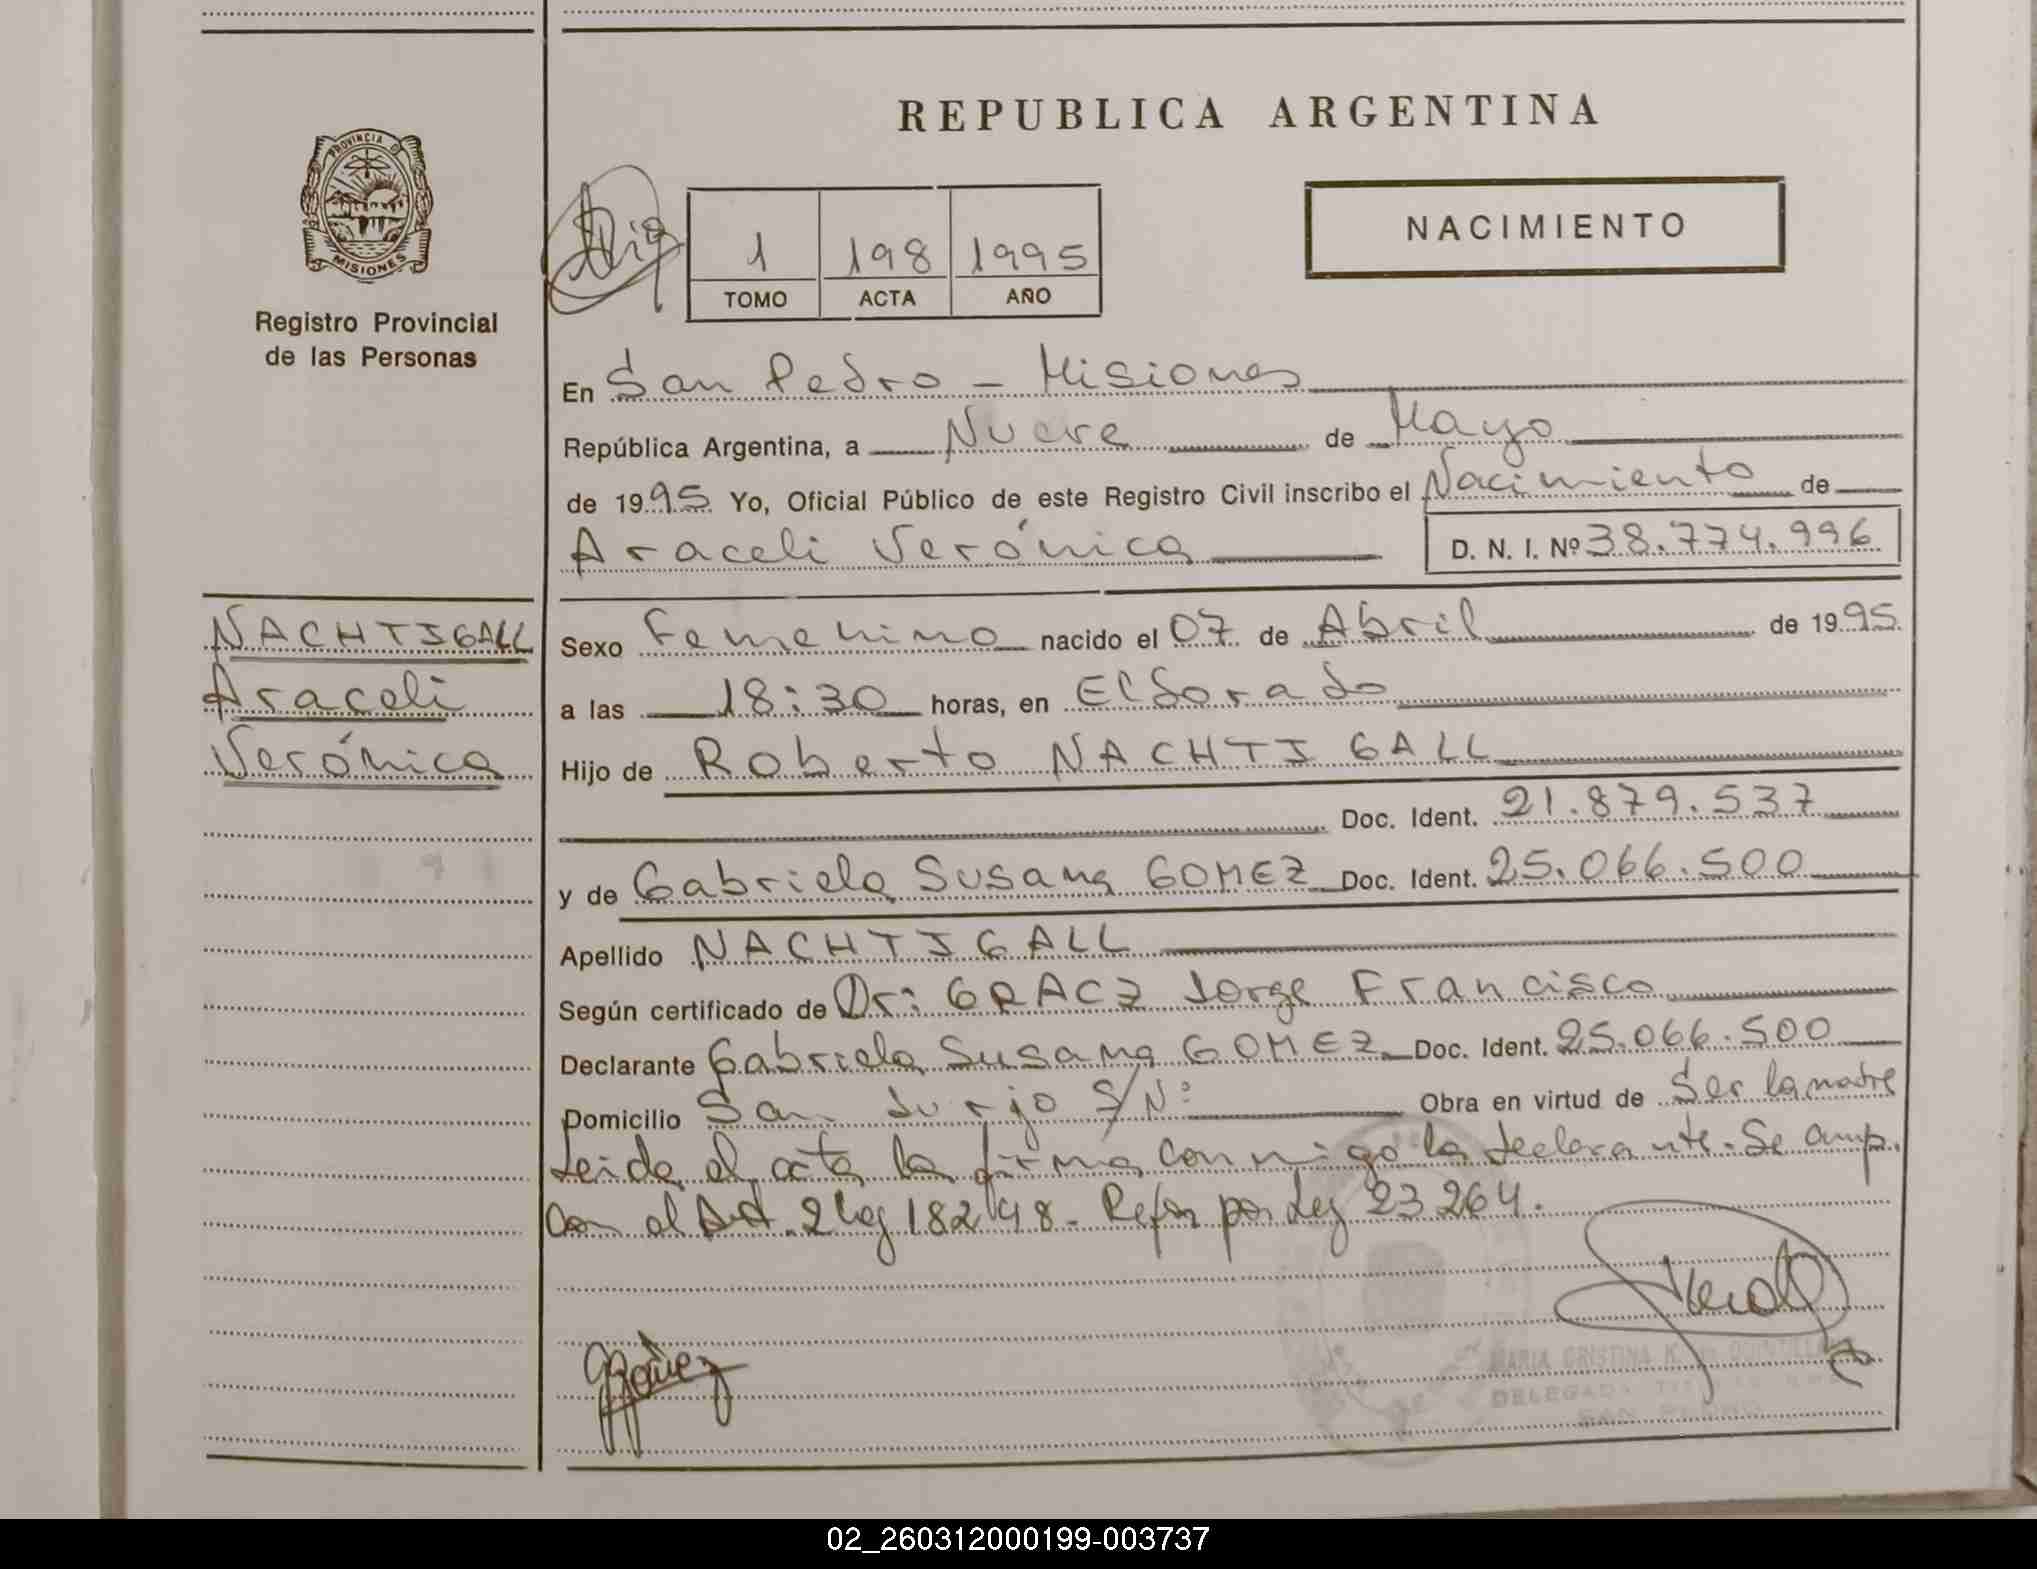 REPUBLICA ARGENTINA
PROVINCIA D
MISIONES
Registro Provincial
de las Personas
1 198 1995
TOMO ACTA AÑO
NACIMIENTO
En San Pedro – Misiones
República Argentina, a Nueve de Mayo
de 1995 Yo, Oficial Público de este Registro Civil inscribo el Nacimiento de
Araceli Verónica D. N. I. Nº 38.774.996
NACHTIGALL
Araceli
Verónica
Sexo Femenino nacido el 07 de Abril de 1995
a las 18:30 horas, en Eldorado
Hijo de Roberto NACHTIGALL
Doc. Ident. 21.879.537
y de Gabriela Susana GOMEZ Doc. Ident. 25.066.500
Apellido NACHTIGALL
Según certificado de Dr: GRACZ Jorge Francisco
Declarante Gabriela Susana GOMEZ Doc. Ident. 25.066.500
Domicilio San Jurjo S/Nº Obra en virtud de Ser la madre
Leida el acta la firma conmigo la declarante. Se amp.
Con el Art. 2 ley 18248. Refor por Ley 23264.
MARIA CRISTINA K. DELEGADA
SAN PEDRO
02_260312000199-003737